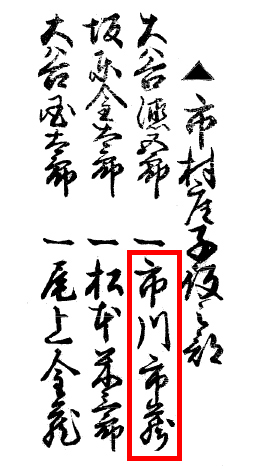 ▲市村座子役之部
大谷㐂五郎
一市川市蔵
坂東金太郎
一松本米三郎
大谷国太郎
一尾上金蔵